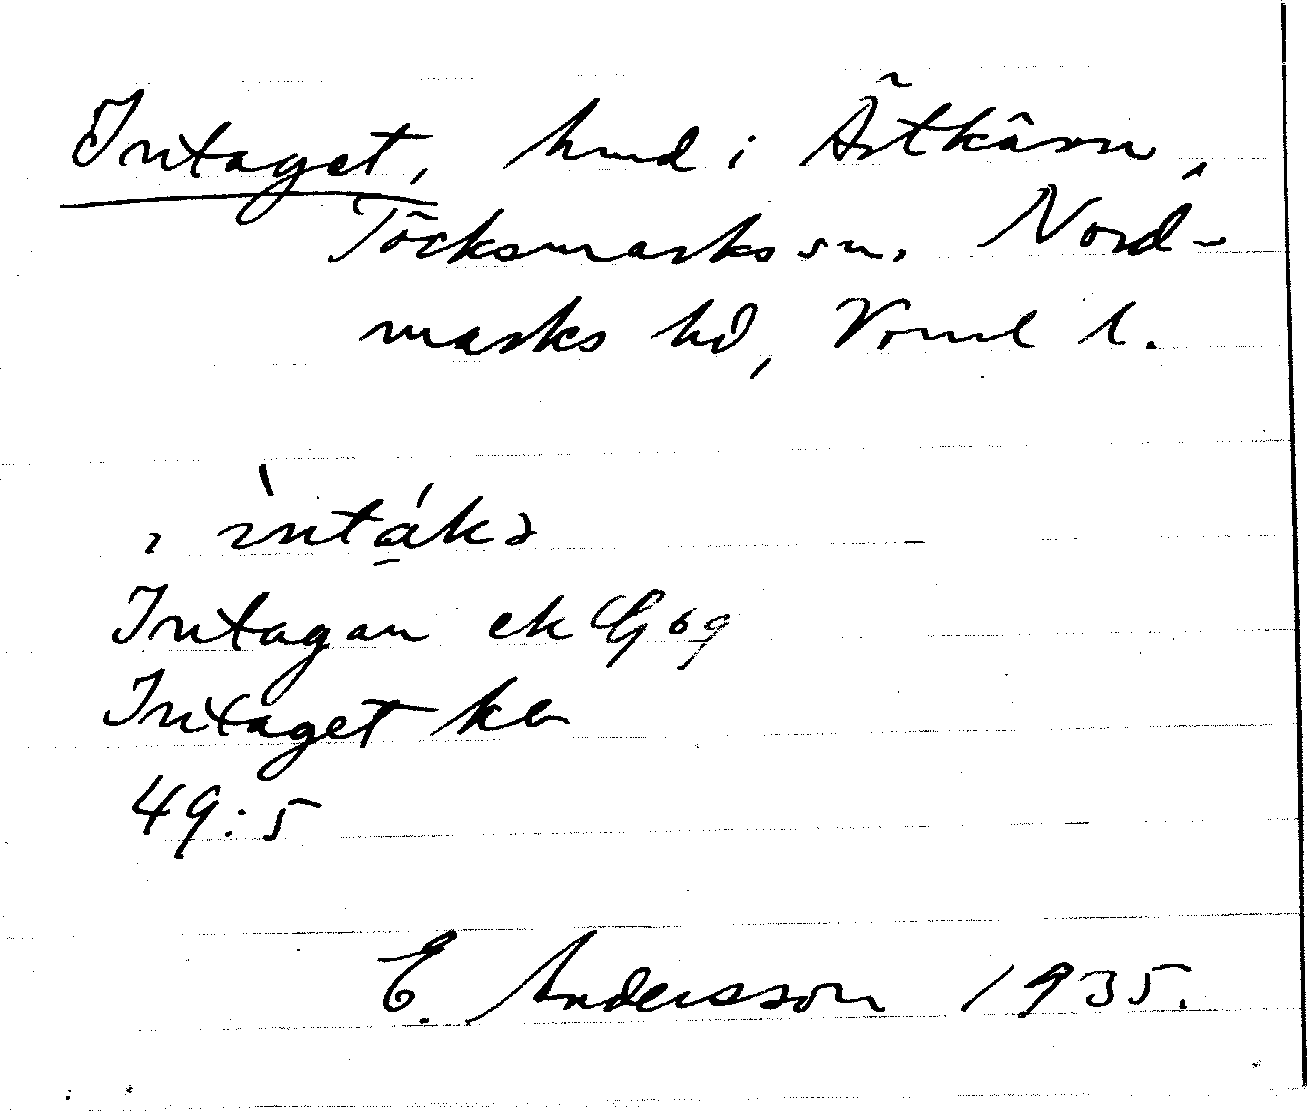 Intaget, hmd i Årtkärn,
Töcksmarks sn. Nord-
marks hd, Vrml l.
ı ìntákə
Intagan ek G69
Intaget ke
49:5
E. Andersson 1935.